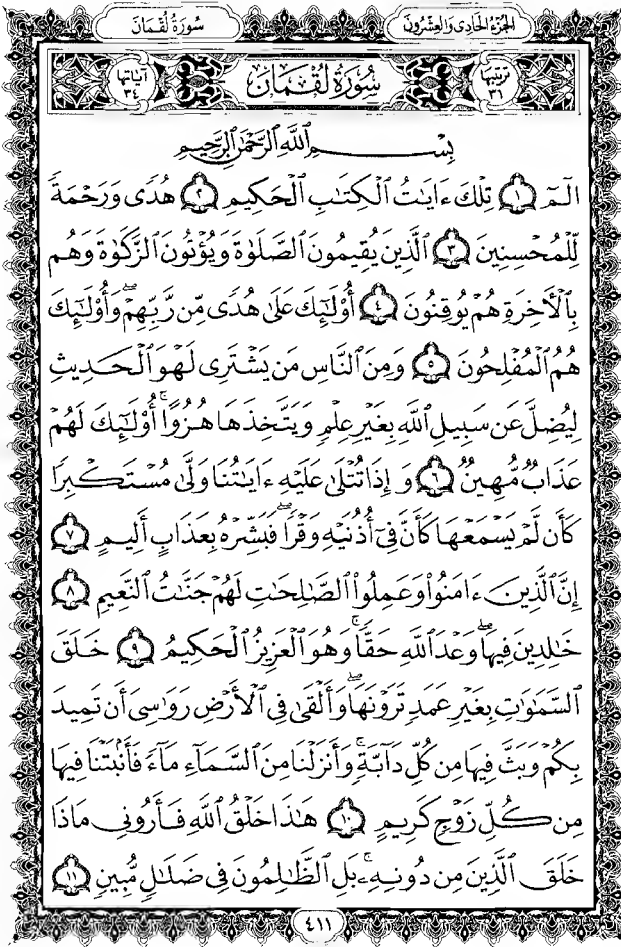 الجزء الحادي والعشرون
سورة لقمان
ترتيبها ٣١
سُورَةُ لُقْمَان
آياتها ٣٤
بِسْمِ ٱللَّهِ ٱلرَّحْمَٰنِ ٱلرَّحِيمِ
الٓمٓ ١ تِلْكَ ءَايَٰتُ ٱلْكِتَٰبِ ٱلْحَكِيمِ ٢ هُدًى وَرَحْمَةً
لِّلْمُحْسِنِينَ ٣ ٱلَّذِينَ يُقِيمُونَ ٱلصَّلَوٰةَ وَيُؤْتُونَ ٱلزَّكَوٰةَ وَهُم
بِٱلْأَخِرَةِ هُمْ يُوقِنُونَ ٤ أُو۟لَٰٓئِكَ عَلَىٰ هُدًى مِّن رَّبِّهِمْۖ وَأُو۟لَٰٓئِكَ
هُمُ ٱلْمُفْلِحُونَ ٥ وَمِنَ ٱلنَّاسِ مَن يَشْتَرِى لَهْوَ ٱلْحَدِيثِ
لِيُضِلَّ عَن سَبِيلِ ٱللَّهِ بِغَيْرِ عِلْمٍ وَيَتَّخِذَهَا هُزُوًاۚ أُو۟لَٰٓئِكَ لَهُمْ
عَذَابٌ مُّهِينٌ ٦ وَإِذَا تُتْلَىٰ عَلَيْهِ ءَايَٰتُنَا وَلَّىٰ مُسْتَكْبِرًا
كَأَن لَّمْ يَسْمَعْهَا كَأَنَّ فِىٓ أُذُنَيْهِ وَقْرًاۖ فَبَشِّرْهُ بِعَذَابٍ أَلِيمٍ ٧
إِنَّ ٱلَّذِينَ ءَامَنُوا۟ وَعَمِلُوا۟ ٱلصَّٰلِحَٰتِ لَهُمْ جَنَّٰتُ ٱلنَّعِيمِ ٨
خَٰلِدِينَ فِيهَاۖ وَعْدَ ٱللَّهِ حَقًّاۚ وَهُوَ ٱلْعَزِيزُ ٱلْحَكِيمُ ٩ خَلَقَ
ٱلسَّمَٰوَٰتِ بِغَيْرِ عَمَدٍ تَرَوْنَهَاۖ وَأَلْقَىٰ فِى ٱلْأَرْضِ رَوَٰسِىَ أَن تَمِيدَ
بِكُمْ وَبَثَّ فِيهَا مِن كُلِّ دَآبَّةٍۚ وَأَنزَلْنَا مِنَ ٱلسَّمَآءِ مَآءً فَأَنۢبَتْنَا فِيهَا
مِن كُلِّ زَوْجٍ كَرِيمٍ ١٠ هَٰذَا خَلْقُ ٱللَّهِ فَأَرُونِى مَاذَا
خَلَقَ ٱلَّذِينَ مِن دُونِهِۦۚ بَلِ ٱلظَّٰلِمُونَ فِى ضَلَٰلٍ مُّبِينٍ ١١
٤١١